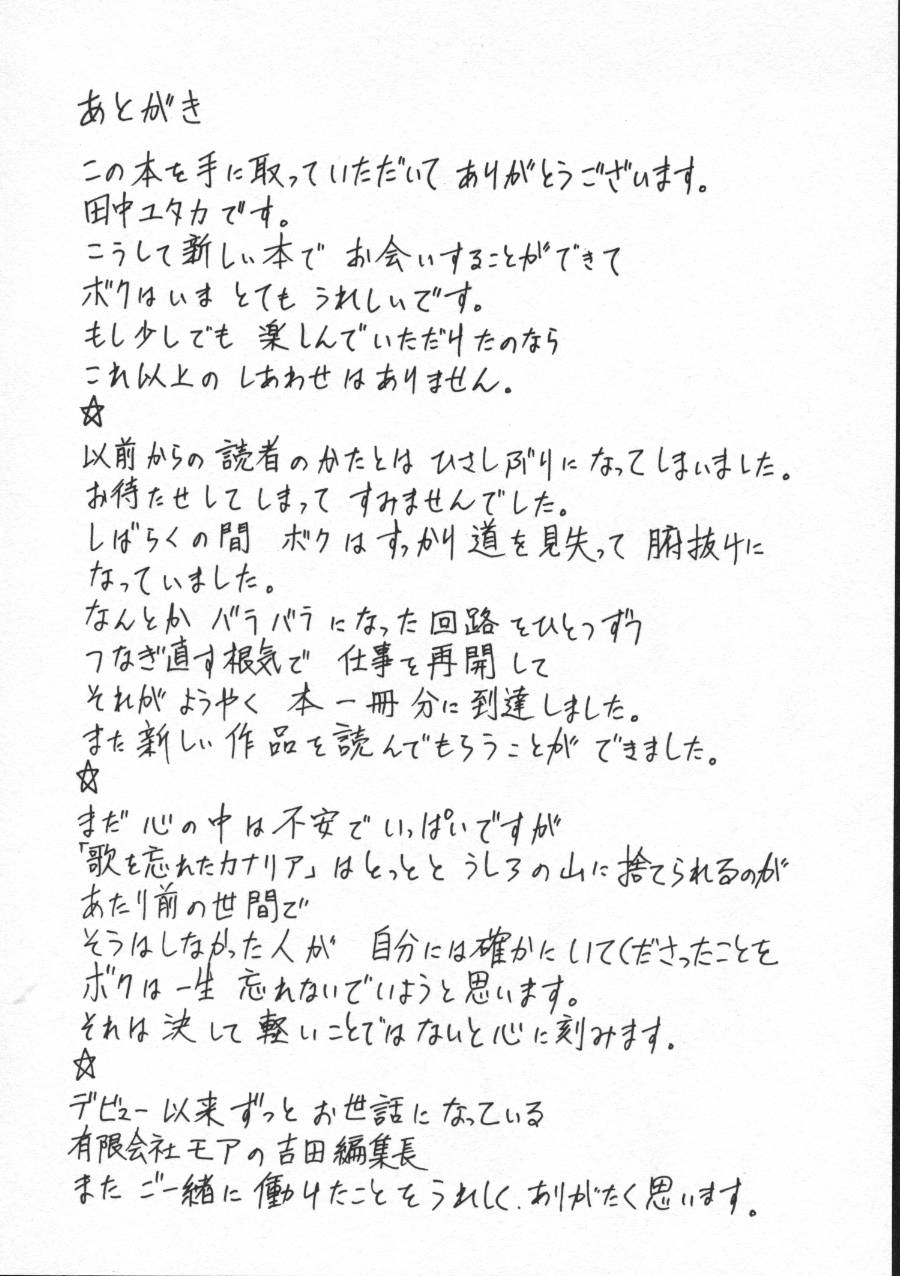 あとがき
この本を手に取っていただいて ありがとうございます。
田中ユタカです。
こうして新しい本で お会いすることができて
ボクはいま とても うれしいです。
もし少しでも 楽しんでいただけたのなら
これ以上の しあわせはありません。
☆
以前からの 読者のかたとは ひさしぶりに なってしまいました。
お待たせしてしまって すみませんでした。
しばらくの間 ボクはすっかり 道を見失って 腑抜けに
なっていました。
なんとか バラバラになった 回路をひとつずつ
つなぎ直す根気で 仕事を再開して
それが ようやく 本一冊分に到達しました。
また新しい作品を読んでもらうことが できました。
☆
まだ 心の中は不安で いっぱいですが
「歌を忘れたカナリア」はとっとと うしろの山に捨てられるのが
あたり前の世間で
そうはしなかった人が 自分には確かにいてくださったことを
ボクは一生 忘れないでいようと思います。
それは 決して 軽いことではないと心に刻みます。
☆
デビュー以来ずっと お世話になっている
有限会社モアの吉田編集長
また ご一緒に 働けたことをうれしく、ありがたく思います。